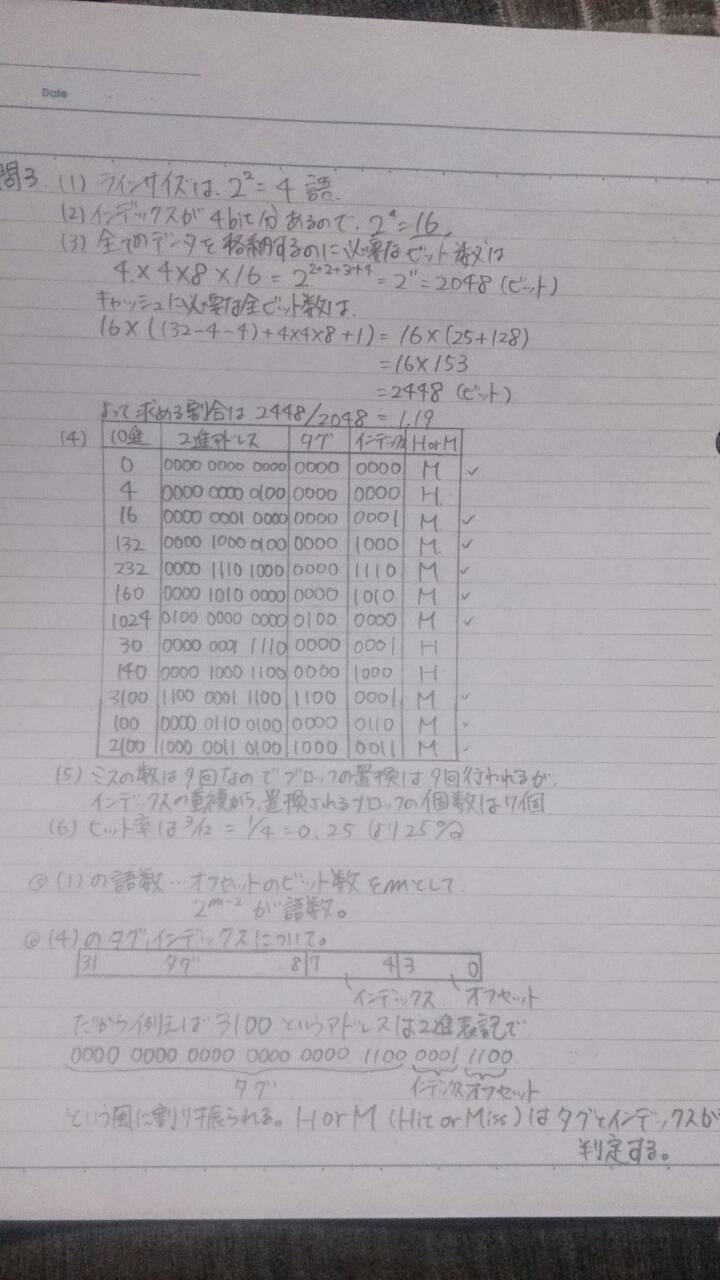 Date
問3. (1) ラインサイズは、2² = 4 語.
(2) インデックスが 4bit分あるので、2⁴ = 16
(3) 全てのデータを格納するのに必要なビット数は
4 × 4 × 8 × 16 = 2²⁺²⁺³⁺⁴ = 2¹¹ = 2048 (ビット)
キャッシュに必要な全ビット数は、
16 × ((32-4-4) + 4×4×8 + 1) = 16 × (25+128)
= 16 × 153
= 2448 (ビット)
よって求める割合は 2448/2048 = 1.19
(4) 10進 2進アドレス タグ インデックス H or M
0 0000 0000 0000 0000 0000 M ✓
4 0000 0000 0100 0000 0000 H
16 0000 0001 0000 0000 0001 M ✓
132 0000 1000 0100 0000 1000 M ✓
232 0000 1110 1000 0000 1110 M ✓
160 0000 1010 0000 0000 1010 M ✓
1024 0100 0000 0000 0100 0000 M ✓
30 0000 0001 1110 0000 0001 H
140 0000 1000 1100 0000 1000 H
3100 1100 0001 1100 1100 0001 M ✓
100 0000 0110 0100 0000 0110 M ✓
2100 1000 0011 0100 1000 0011 M ✓
(5) ミスの数は9回なのでブロックの置換は9回行われるが、
インデックスの重複から、置換されるブロックの個数は7個
(6) ヒット率は 3/12 = 1/4 = 0.25 より25%
(1) の語数…オフセットのビット数をmとして、
2ᵐ⁻² が語数。
(4) のタグ、インデックスについて。
31 タグ 8 7 4 3 0
インデックス オフセット
だから例えば 3100 というアドレスは2進表記で
0000 0000 0000 0000 0000 1100 0001 1100
タグ インデックス オフセット
という風に割り振られる。H or M (Hit or Miss) はタグとインデックスが
判定する。